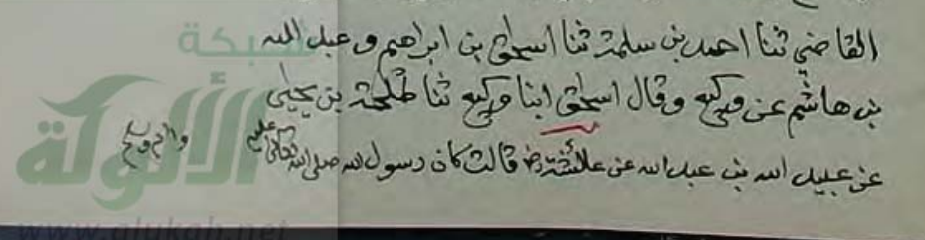 القاضي ثنا احمد بن سلمة ثنا اسحاق بن ابراهيم و عبد الله
بن هاشم عن وكيع و قال اسحاق ابنا وكيع ثنا طلحة بن يحيى
عن عبيد الله بن عبد الله عن عائشة رض قالت كان رسول الله صلى الله تعالى عليه واله وسلم
شبكة
الألوكة
www.alukah.net